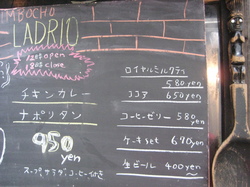 IMBOCHO
LADRIO
open
close
チキンカレー
ナポリタン
950
yen
スープサラダ、コーヒー付き
ロイヤルミルクティ
580yen
ココア 650yen
コーヒーゼリー 580
yen
ケーキset 670yen
生ビール 400yen